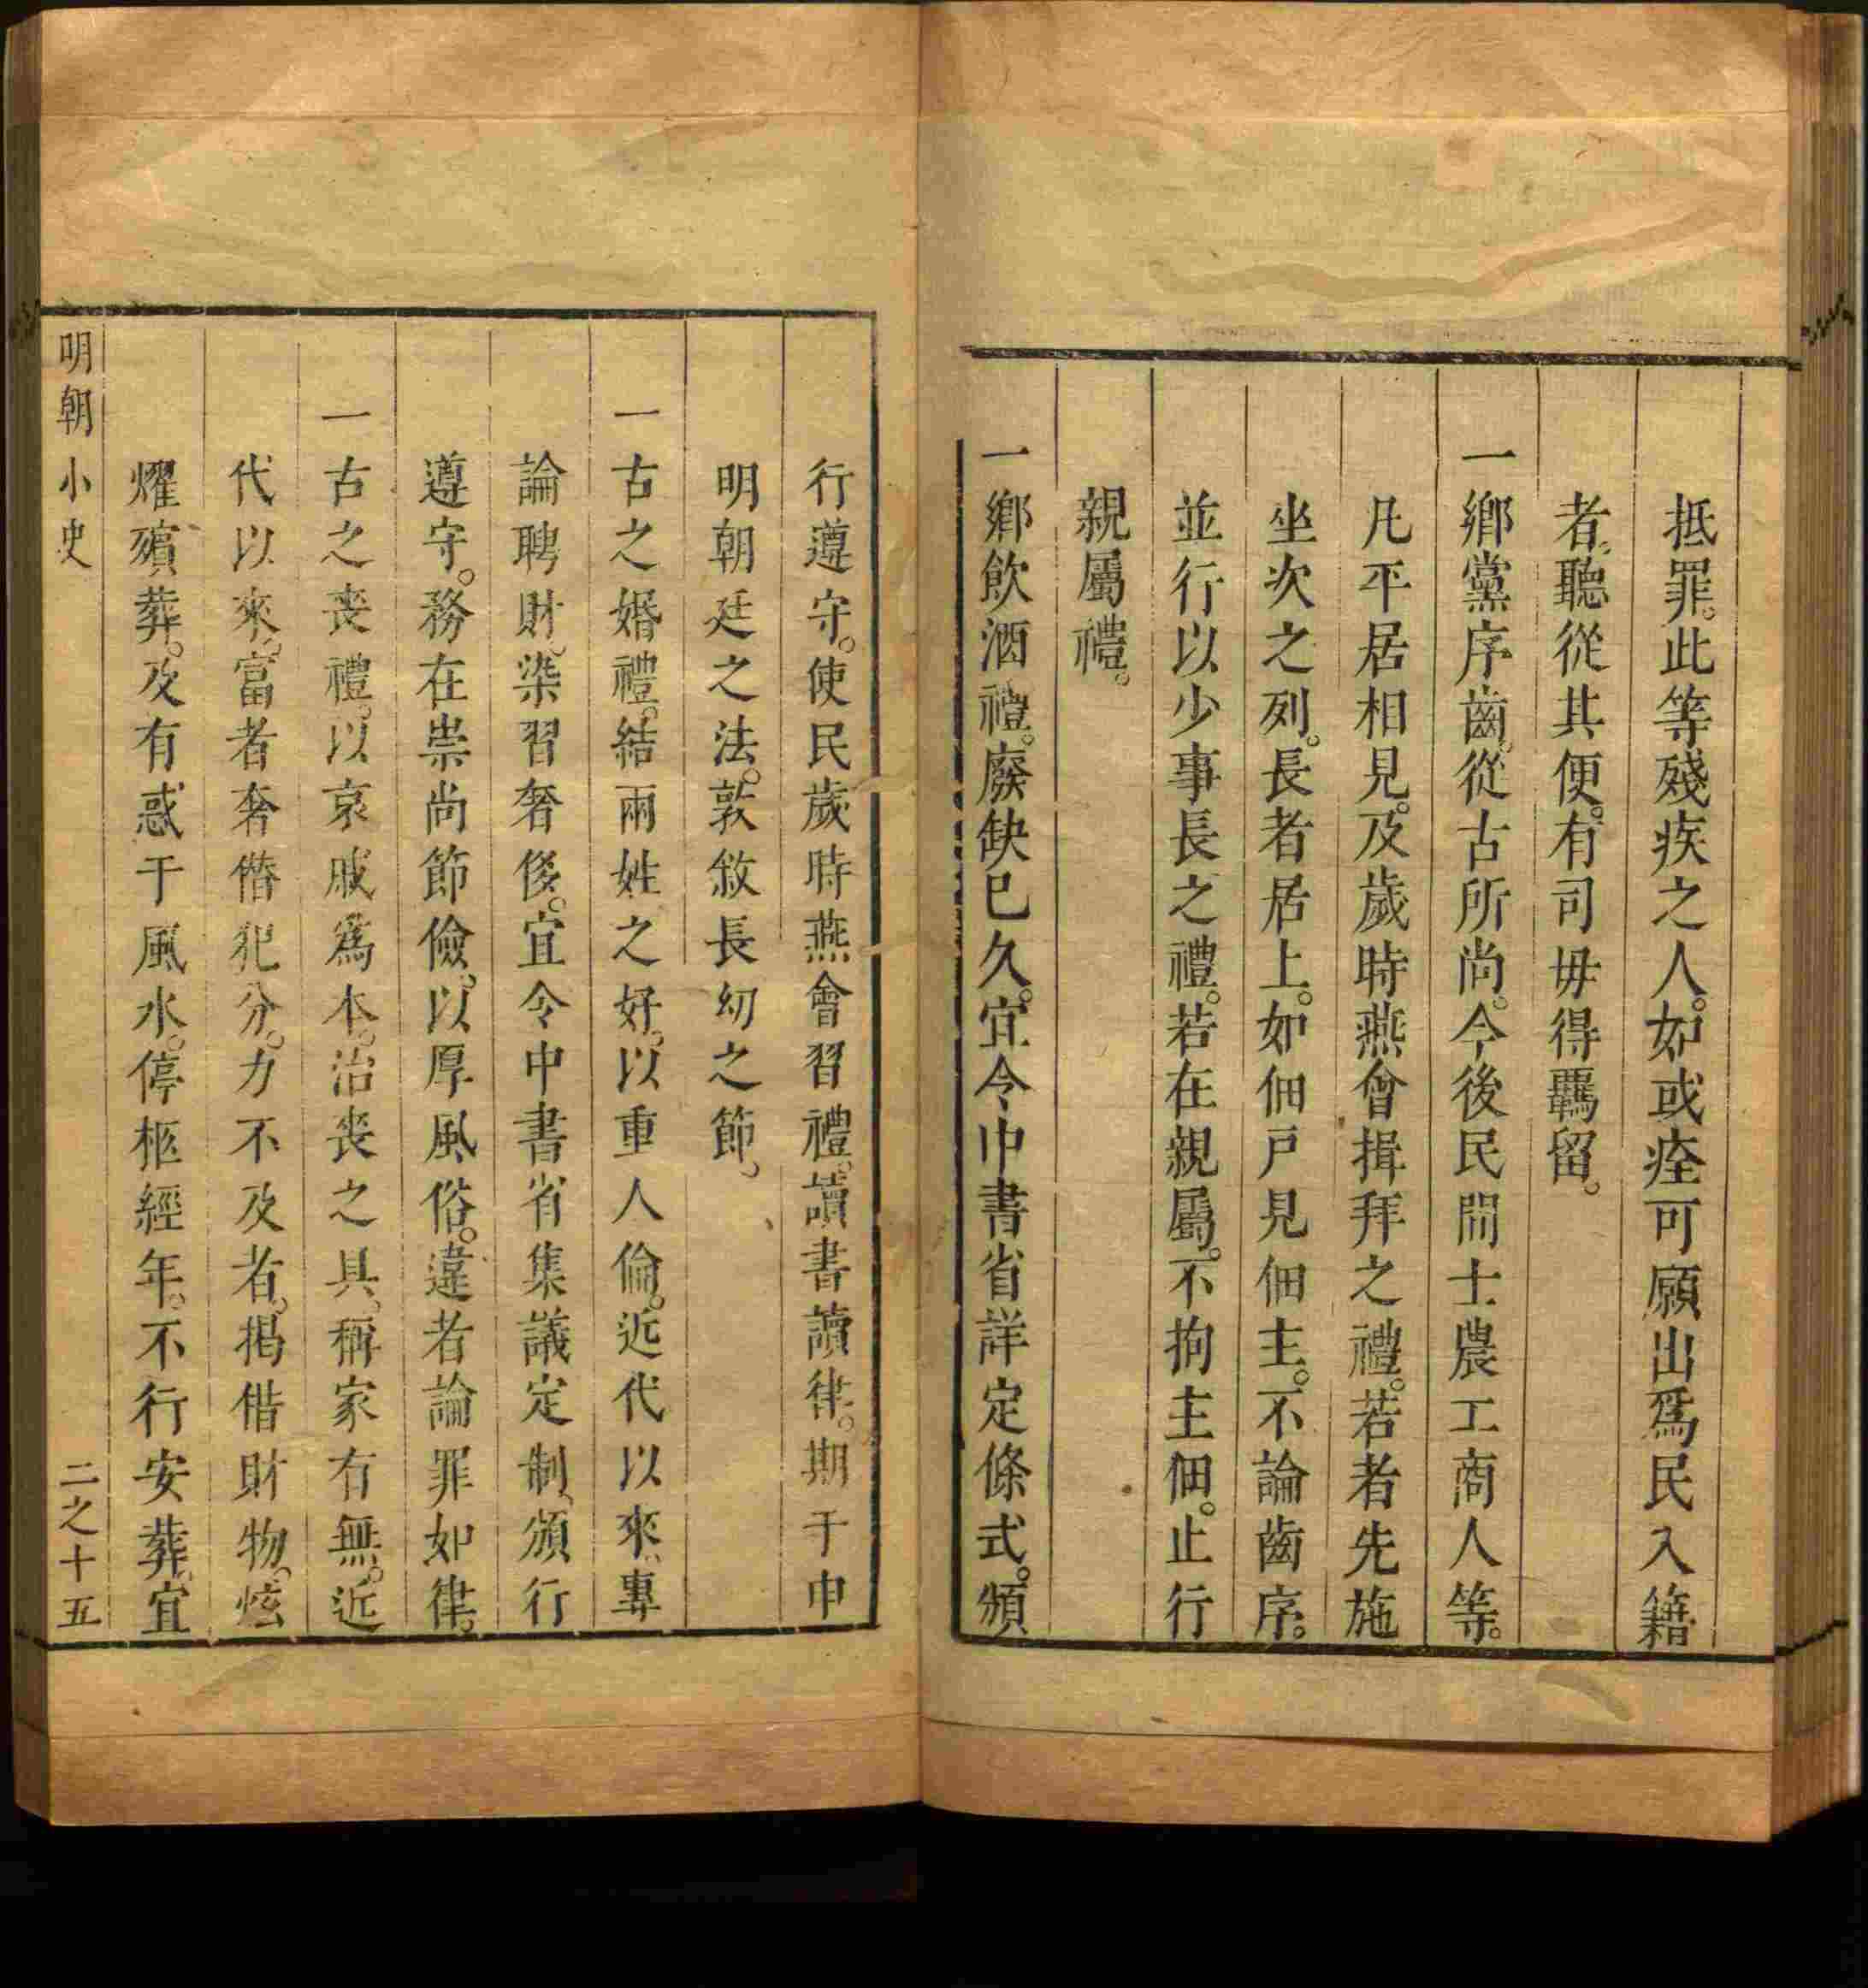 抵罪。此等殘疾之人。如或痊可願出爲民入籍
者。聽從其便。有司毋得羈留。
一鄉黨序齒。從古所尚。今後民間士農工商人等。
凡平居相見。及歲時燕會揖拜之禮。若者先施
坐次之列。長者居上。如佃戸見佃主。不論齒序。
並行以少事長之禮。若在親屬。不拘主佃。止行
親屬禮。
一鄉飲酒禮。廢缺已久。宜令中書省詳定條式。頒
行遵守。使民歲時燕會習禮。讀書讀律。期于申
明朝廷之法。敦敘長幼之節。
一古之婚禮。結兩姓之好。以重人倫。近代以來。專
論聘財。染習奢侈。宜令中書省集議定制。頒行
遵守。務在崇尚節儉。以厚風俗。違者論罪如律。
一古之喪禮。以哀戚爲本。治喪之具。稱家有無。近
代以來。富者奢僭犯分。力不及者。揭借財物。炫
燿殯葬。及有惑于風水。停柩經年。不行安葬。宜
明朝小史
二之十五